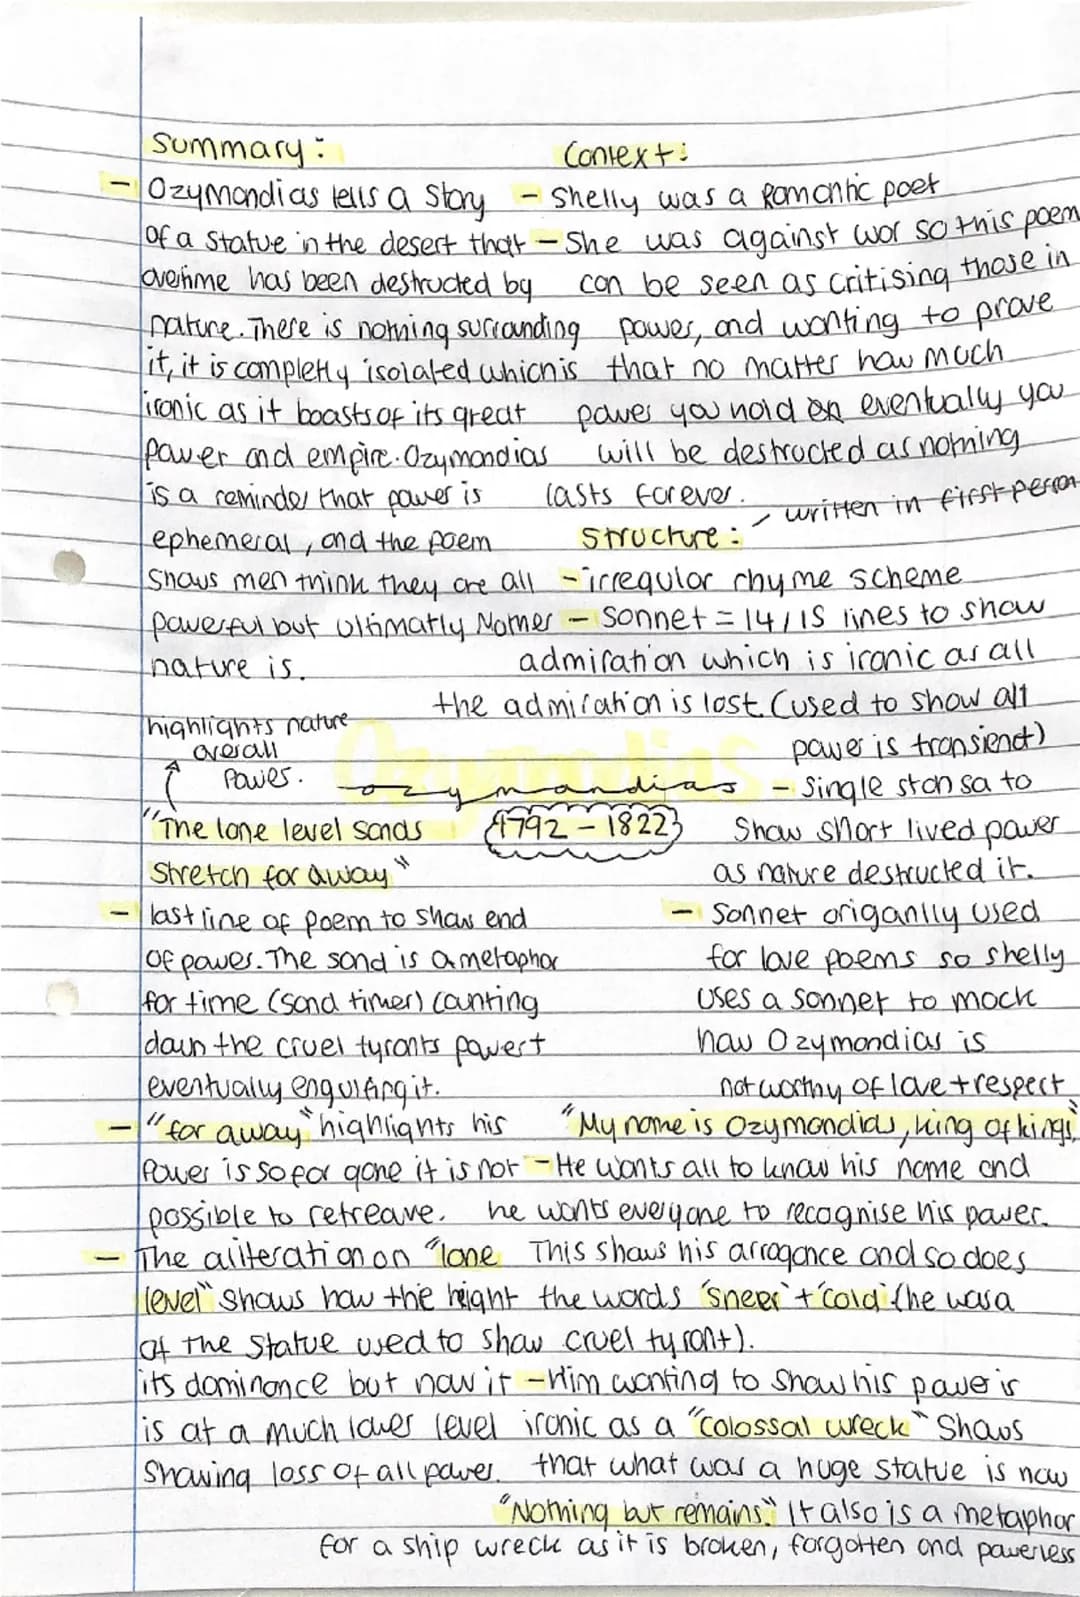 Summary:
- Ozymandias tells a story
of a statue in the desert that
overtime has been destructed by
nature. There is nothing surrounding
it, it is completly isolated which is
ironic as it boasts of its great
power and empire. Ozymandias
is a reminder that power is
ephemeral, and the poem
shows men think they are all
powerful but ultimatly Mother
nature is.
Context:
- Shelly was a Romantic poet
- She was against war so this poem
can be seen as critising those in
power, and wanting to prove
that no matter how much
power you hold on eventually you
will be destructed as nothing
lasts forever.
Structure: - written in first person
- irregular rhyme scheme
- Sonnet = 14/15 lines to show
admiration which is ironic as all
the admiration is lost (used to show all
power is transienet)
- Single stansa to
show short lived power
as nature destructed it.
- Sonnet origanlly used
for love poems so shelly
uses a sonnet to mock
how Ozymandias is
not worthy of love + respect
Ozymandias
ozymandias
1792 - 1822
highlights nature
overall
power.
"The lone level sands
stretch far away"
- last line of poem to show end
of power. The sand is a metaphor
for time (sand timer) counting
down the cruel tyrants power +
eventually engulfing it.
- "far away" highlights his
power is so far gone it is not
possible to retreave.
- The aliteration on "lone
level" shows how the hieght
of the statue used to show
its dominance but now it
is at a much lower level
showing loss of all power.
"My name is Ozymandias, king of kings"
- He wants all to know his name and
he wants everyone to recognise his power.
This shows his arrogance and so does
the words 'sneer' + 'cold' (he was a
cruel tyrant).
- Him wanting to show his power is
ironic as a "colossal wreck" shows
that what was a huge statue is now
"Nothing but remains." It also is a metaphor
for a ship wreck as it is broken, forgotten and powerless